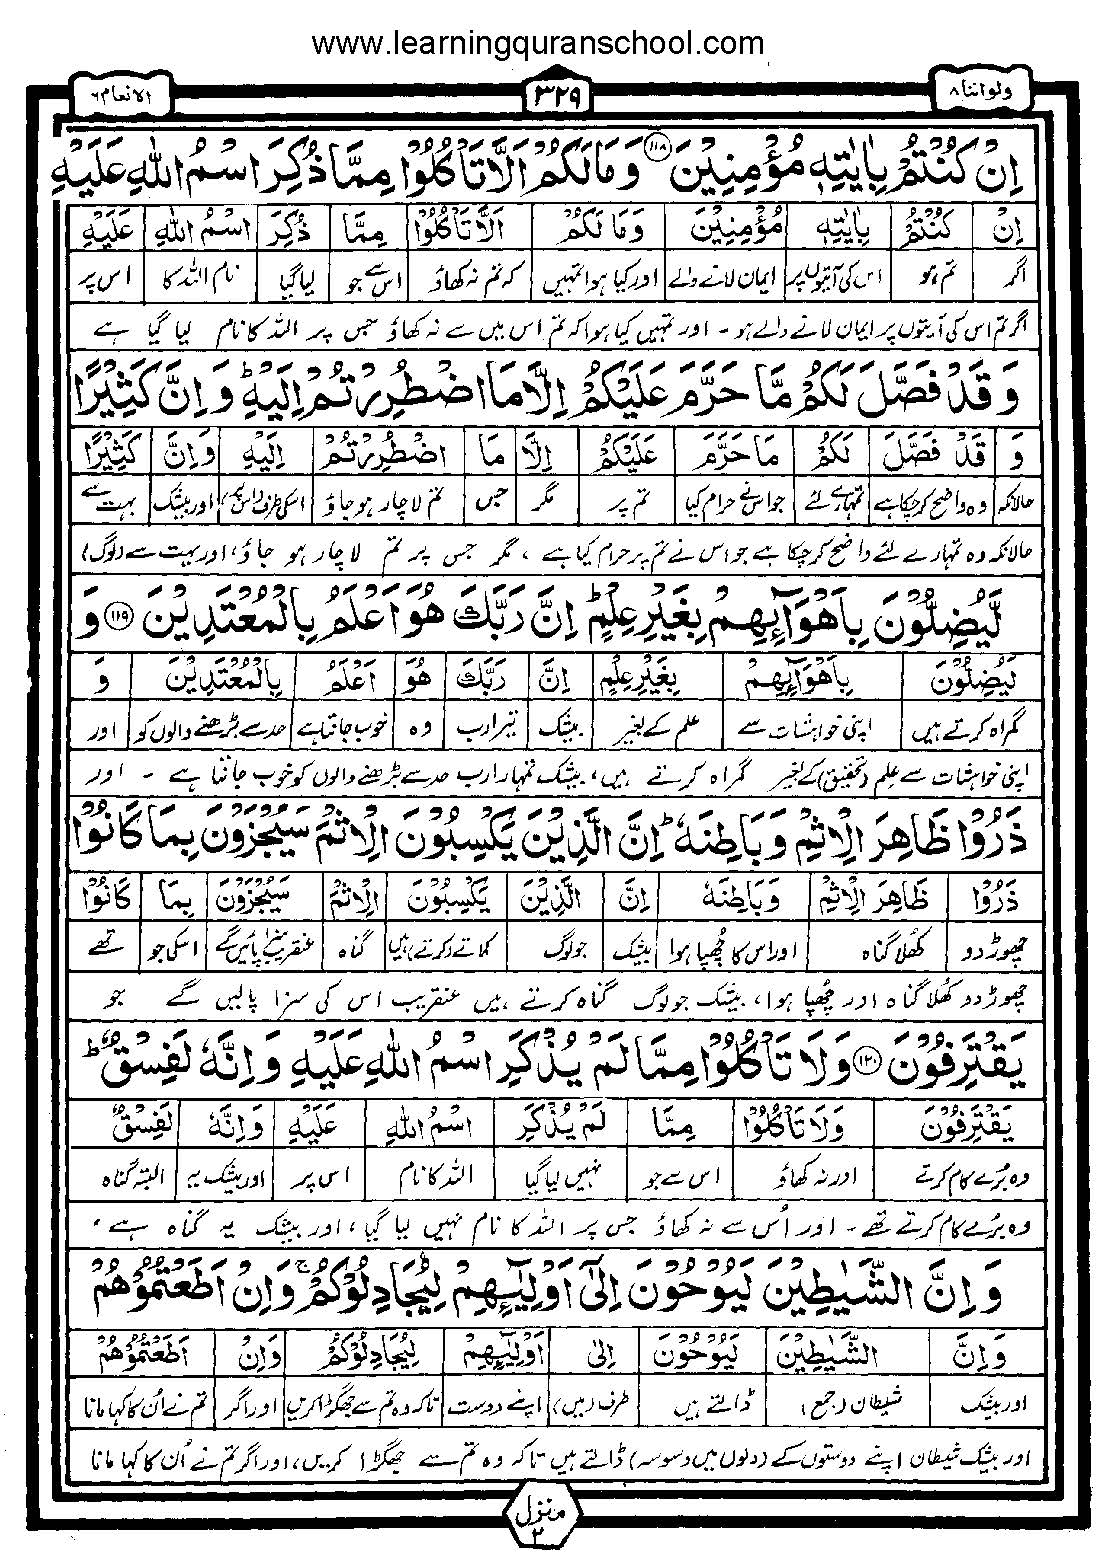 www.learningquranschool.com
ولواننا ٨
٣٢٩
الانعام ٦
اِنْ كُنْتُمْ بِاٰيٰتِهٖ مُؤْمِنِيْنَ ﴿۱۱۸﴾ وَمَا لَكُمْ اَلَّا تَاْكُلُوْا مِمَّا ذُكِرَ اسْمُ اللّٰهِ عَلَيْهِ
اِنْ كُنْتُمْ بِاٰيٰتِهٖ مُؤْمِنِيْنَ وَمَا لَكُمْ اَلَّا تَاْكُلُوْا مِمَّا ذُكِرَ اسْمُ اللّٰهِ عَلَيْهِ
اگر تم ہو اس کی آیتوں پر ایمان لانے والے اور کیا ہوا تمہیں کہ تم نہ کھاؤ اس سے جو لیا گیا نام اللہ کا اس پر
اگر تم اس کی آیتوں پر ایمان لانے والے ہو - اور تمہیں کیا ہوا کہ تم اس میں سے نہ کھاؤ جس پر اللہ کا نام لیا گیا ہے
وَقَدْ فَصَّلَ لَكُمْ مَّا حَرَّمَ عَلَيْكُمْ اِلَّا مَا اضْطُرِرْتُمْ اِلَيْهِ ؕ وَاِنَّ كَثِيْرًا
وَ قَدْ فَصَّلَ لَكُمْ مَا حَرَّمَ عَلَيْكُمْ اِلَّا مَا اضْطُرِرْتُمْ اِلَيْهِ وَاِنَّ كَثِيْرًا
حالانکہ وہ واضح کر چکا ہے تمہارے لئے جو اس نے حرام کیا تم پر مگر جس تم لاچار ہو جاؤ اسکی طرف (اس پر) اور بیشک بہت سے
حالانکہ وہ تمہارے لئے واضح کر چکا ہے جو اس نے تم پر حرام کیا ہے ، مگر جس پر تم لاچار ہو جاؤ، اور بہت سے (لوگ)
لَّيُضِلُّوْنَ بِاَهْوَآئِهِمْ بِغَيْرِ عِلْمٍ ؕ اِنَّ رَبَّكَ هُوَ اَعْلَمُ بِالْمُعْتَدِيْنَ ﴿۱۱۹﴾ وَ
لَيُضِلُّوْنَ بِاَهْوَآئِهِمْ بِغَيْرِ عِلْمٍ اِنَّ رَبَّكَ هُوَ اَعْلَمُ بِالْمُعْتَدِيْنَ وَ
گمراہ کرتے ہیں اپنی خواہشات سے علم کے بغیر بیشک تیرا رب وہ خوب جانتا ہے حد سے بڑھنے والوں کو اور
اپنی خواہشات سے علم (تحقیق) کے بغیر گمراہ کرتے ہیں، بیشک تمہارا رب حد سے بڑھنے والوں کو خوب جانتا ہے - اور
ذَرُوْا ظَاهِرَ الْاِثْمِ وَبَاطِنَهٗ ؕ اِنَّ الَّذِيْنَ يَكْسِبُوْنَ الْاِثْمَ سَيُجْزَوْنَ بِمَا كَانُوْا
ذَرُوْا ظَاهِرَ الْاِثْمِ وَبَاطِنَهٗ اِنَّ الَّذِيْنَ يَكْسِبُوْنَ الْاِثْمَ سَيُجْزَوْنَ بِمَا كَانُوْا
چھوڑ دو کھلا گناہ اور اس کا چھپا ہوا بیشک جو لوگ کماتے (کرتے) ہیں گناہ عنقریب سزا پائیں گے اسکی جو تھے
چھوڑ دو کھلا گناہ اور چھپا ہوا، بیشک جو لوگ گناہ کرتے ہیں عنقریب اس کی سزا پالیں گے جو
يَقْتَرِفُوْنَ ﴿۱۲۰﴾ وَلَا تَاْكُلُوْا مِمَّا لَمْ يُذْكَرِ اسْمُ اللّٰهِ عَلَيْهِ وَاِنَّهٗ لَفِسْقٌ ؕ
يَقْتَرِفُوْنَ وَلَا تَاْكُلُوْا مِمَّا لَمْ يُذْكَرِ اسْمُ اللّٰهِ عَلَيْهِ وَاِنَّهٗ لَفِسْقٌ
وہ برے کام کرتے اور نہ کھاؤ اس سے جو نہیں لیا گیا اللہ کا نام اس پر اور بیشک یہ البتہ گناہ
وہ بُرے کام کرتے تھے - اور اُس سے نہ کھاؤ جس پر اللہ کا نام نہیں لیا گیا، اور بیشک یہ گناہ ہے،
وَاِنَّ الشَّيٰطِيْنَ لَيُوْحُوْنَ اِلٰٓى اَوْلِيٰٓئِهِمْ لِيُجَادِلُوْكُمْ ۚ وَاِنْ اَطَعْتُمُوْهُمْ
وَاِنَّ الشَّيٰطِيْنَ لَيُوْحُوْنَ اِلٰى اَوْلِيٰٓئِهِمْ لِيُجَادِلُوْكُمْ وَاِنْ اَطَعْتُمُوْهُمْ
اور بیشک شیطان (جمع) ڈالتے ہیں طرف (میں) اپنے دوست تاکہ وہ تم سے جھگڑا کریں اور اگر تم نے اُن کا کہا مانا
اور بیشک شیطان اپنے دوستوں کے (دلوں میں وسوسہ) ڈالتے ہیں تاکہ وہ تم سے جھگڑا کریں، اور اگر تم نے اُن کا کہا مانا
منزل ٢